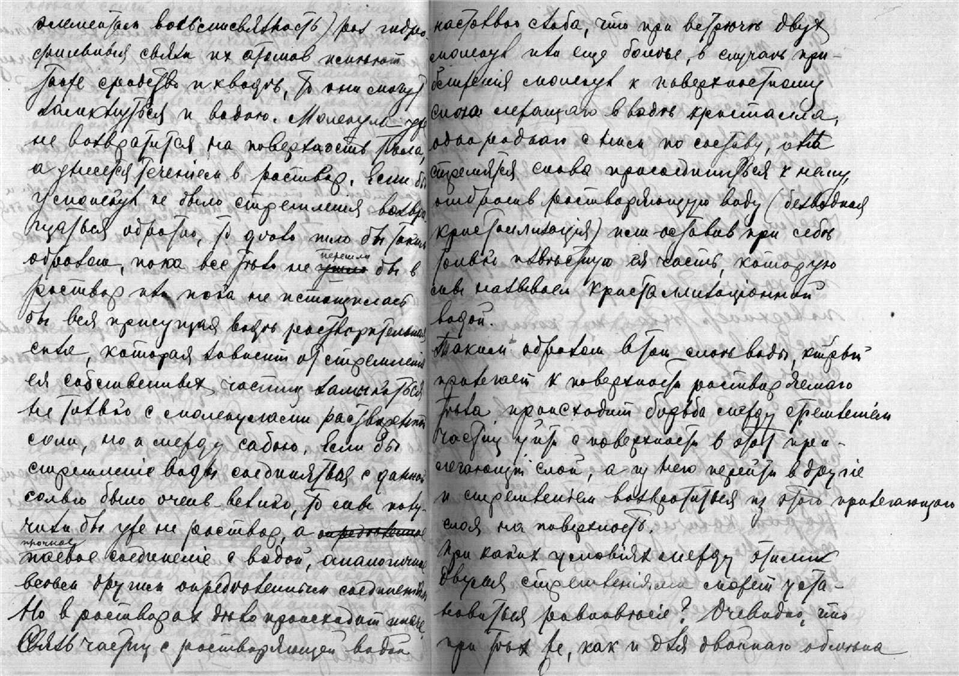 элементовъ
связи ихъ атомовъ
сродство и къ водѣ, то они могутъ
и водою. Молекула
не возвратится на поверхность тѣла,
а унесется теченіемъ въ растворъ. Если бы
у молекулъ не было стремленія
обратно, то дѣло шло бы такимъ
образомъ, пока все тѣло не перешло бы въ
растворъ или пока не истощилась
бы вся присущая водѣ растворительная
сила, которая зависитъ отъ стремленія
ея собственныхъ частицъ замыкаться
не только съ молекулами
соли, но и между собою. Если бы
стремленіе воды соединяться съ данной
солью было очень велико, то мы
бы уже не растворъ, а
прочное
паевое соединеніе съ водой, аналогичное
всѣмъ другимъ опредѣленнымъ соединеніямъ
Но въ растворахъ дѣло происходитъ иначе
Связь частицъ съ растворяющей водой
настолько слаба, что при встрѣчѣ двухъ
молекулъ или еще больше, въ случаѣ при-
ближенія молекулъ къ поверхностному
слою лежащаго въ водѣ кристалла,
однороднаго съ ними по составу, онѣ
стремятся снова присоединиться къ нему,
отбросивъ растворяющую воду (безводная
кристаллизація) или оставивъ при себѣ
только извѣстную ея часть, которую
мы называемъ кристаллизаціонной
водой.
Такимъ образомъ въ томъ слоѣ воды, который
прилегаетъ къ поверхности растворяемаго
тѣла происходитъ борьба между стремленіемъ
частицъ уйти съ поверхности въ этотъ при-
легающій слой, а изъ него перейти въ другіе
и стремленіемъ возвратиться изъ этого прилегающаго
слоя на поверхность.
При какихъ условіяхъ между этими
двумя стремленіями можетъ уста-
новиться равновѣсіе? Очевидно, что
при тѣхъ же, какъ и для двойнаго обмѣна